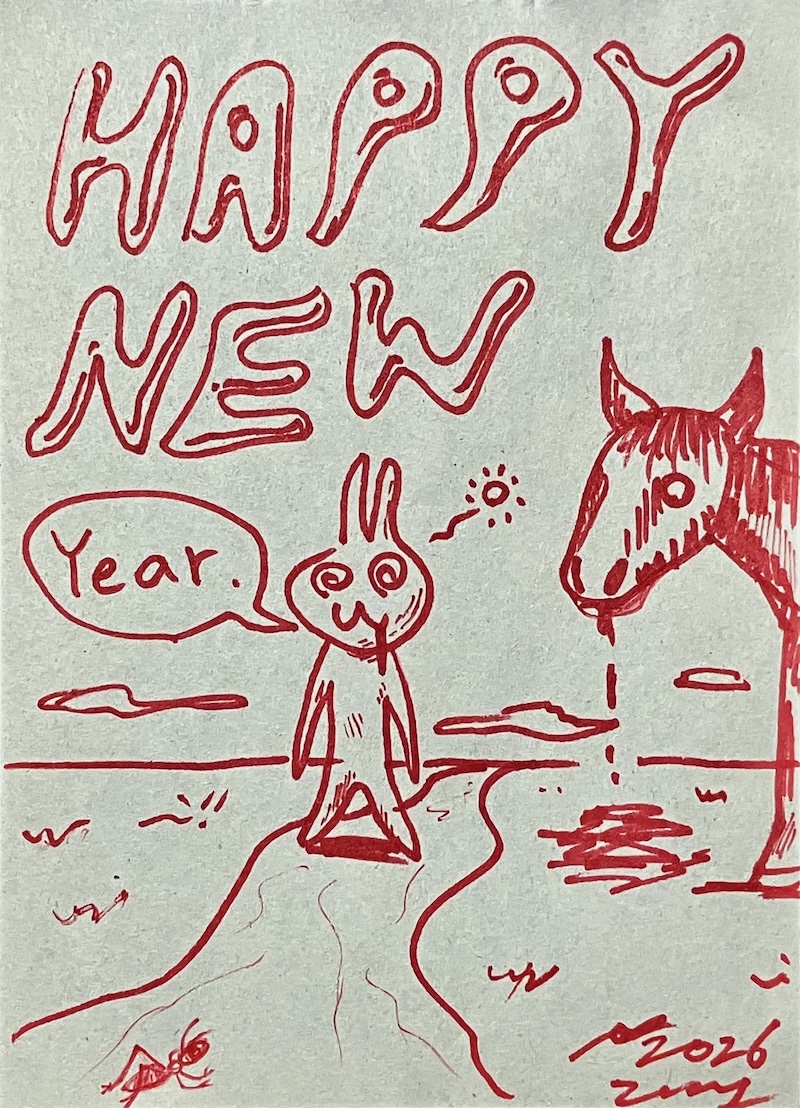 HAPPY
NEW
Year.
2026